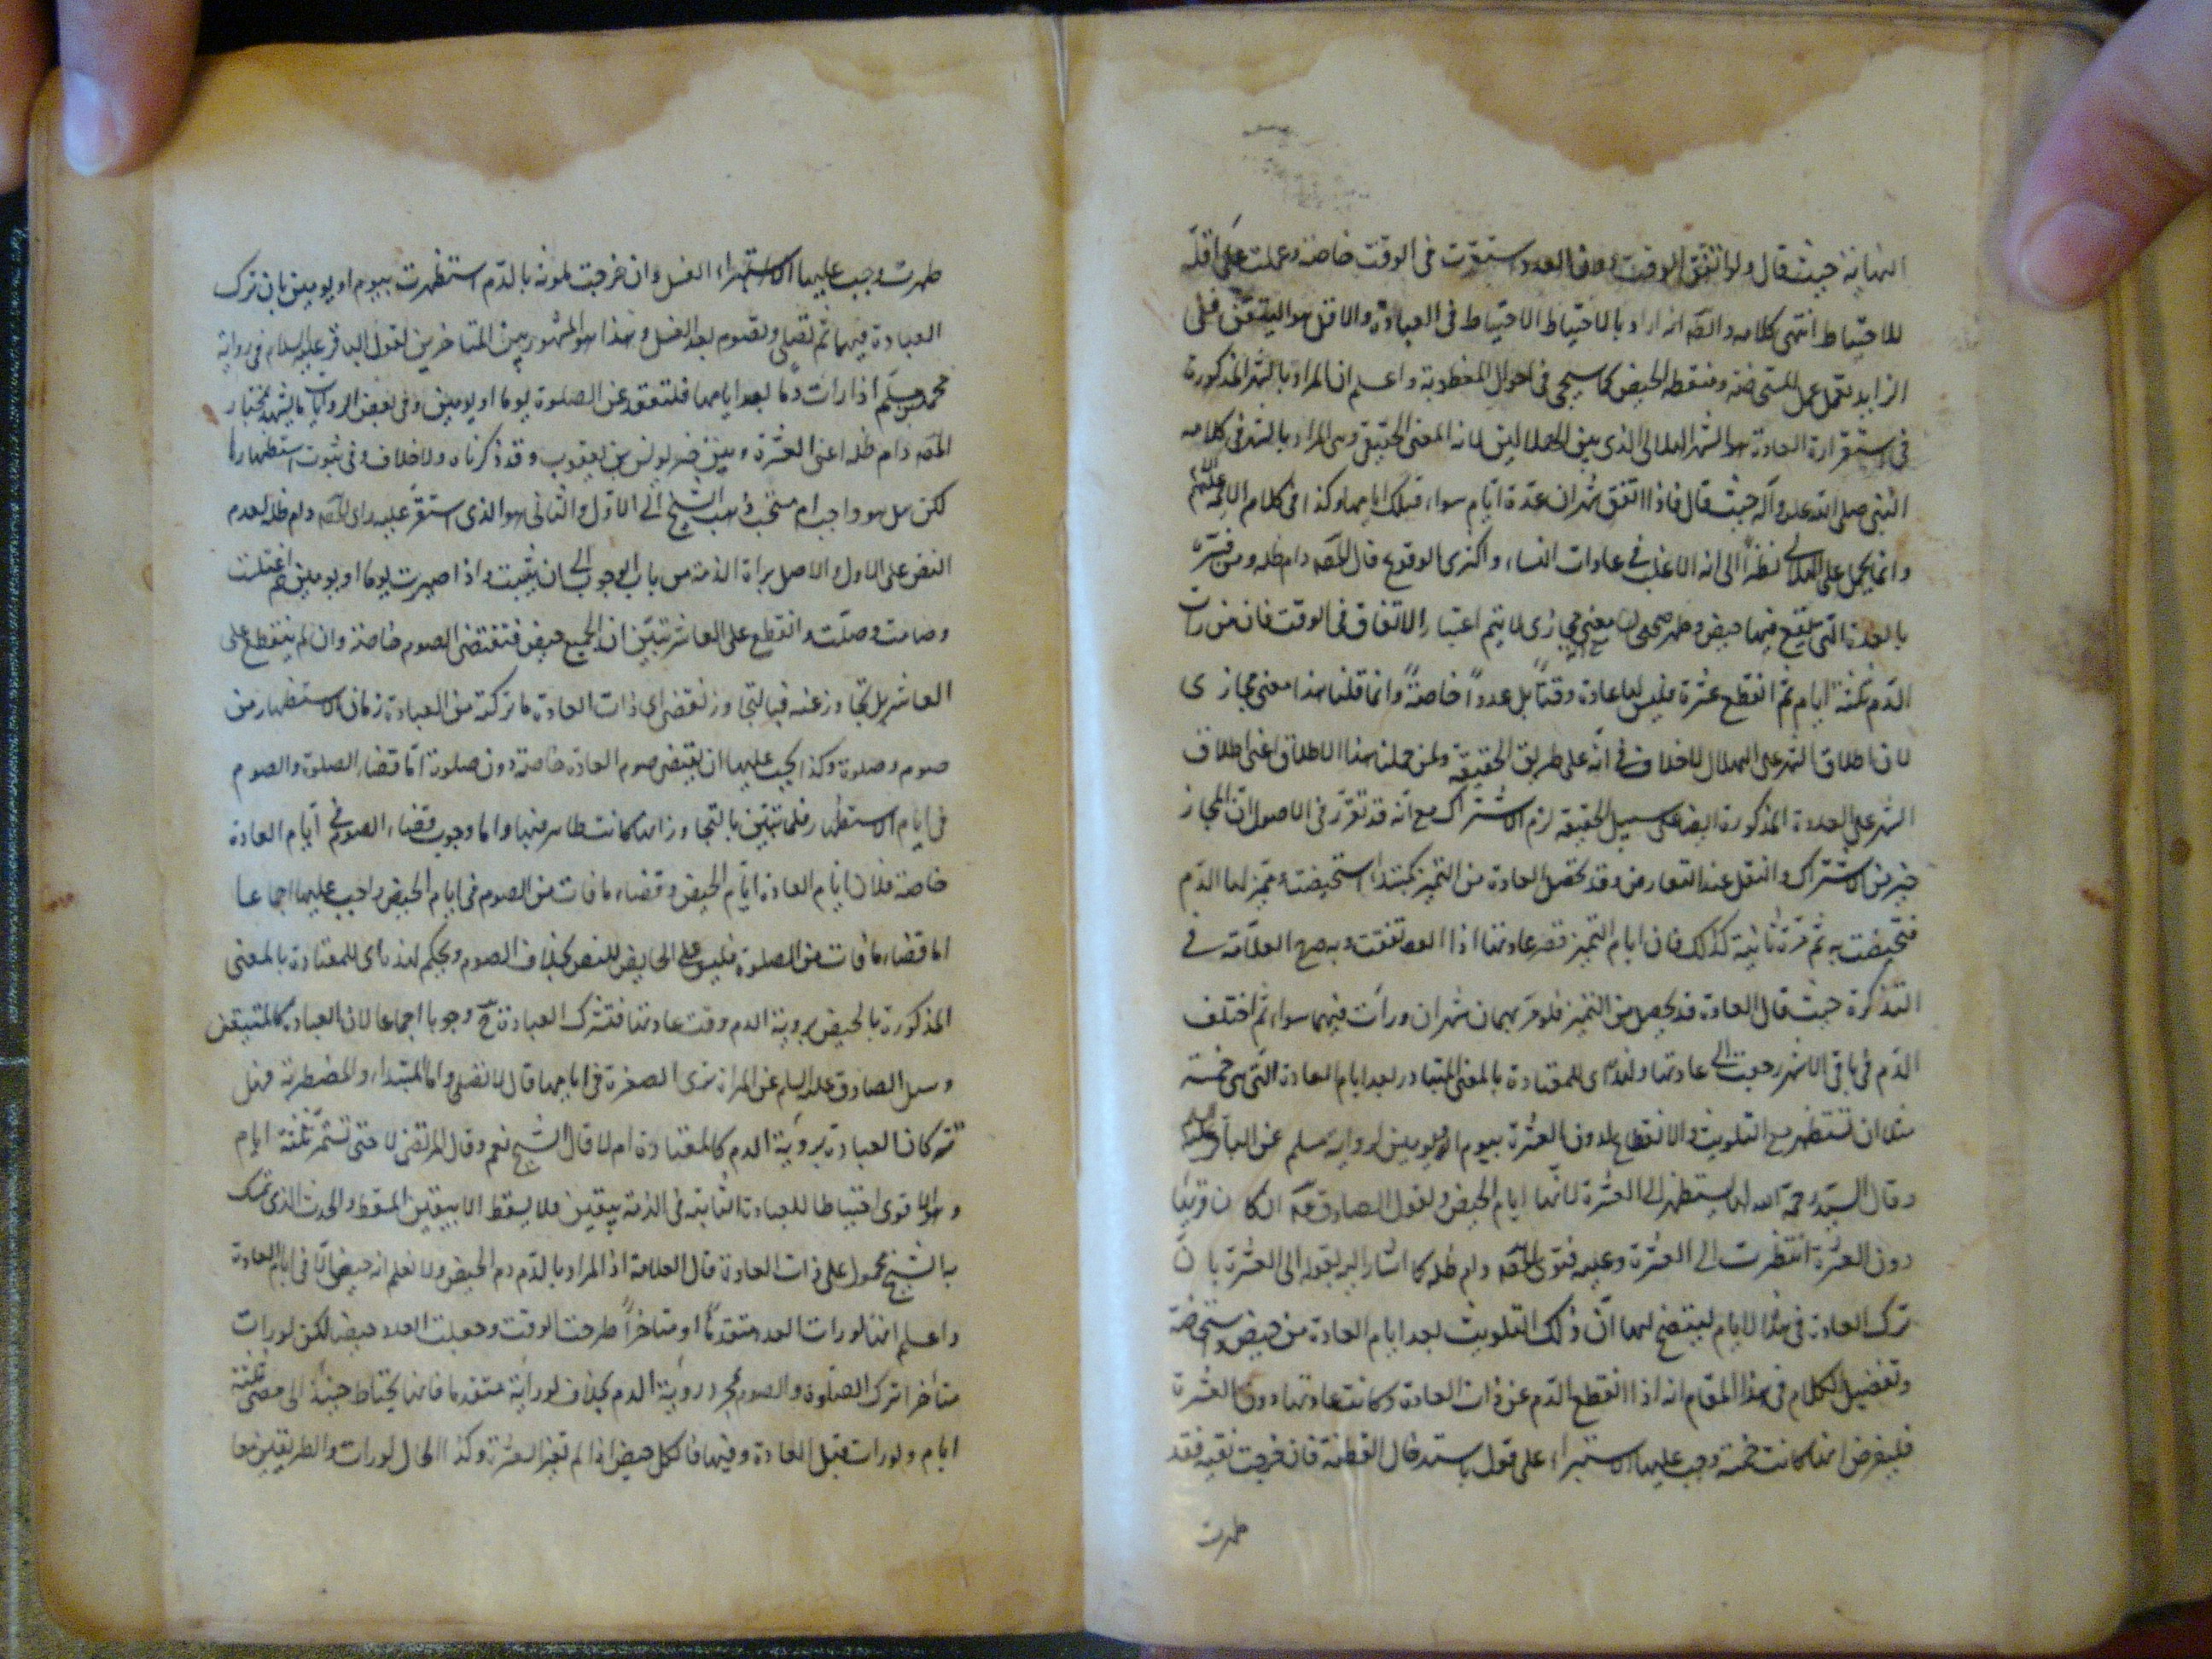 النهاية حيث قال ولو اتفق الوقت دون العدد استقرت فى الوقت خاصة وعملت على اقله
للاحتياط انتهى كلامه والظ انه اراد بالاحتياط الاحتياط فى العبادة والاقل هو المتيقن ففى
الزايد تعمل عمل المستحاضة ومنقطعة الحيض كما سيجى فى احوال المضطربة واعلم ان المراد بالشهر المذكورة
فى استقرارة العادة هو الشهر الهلالى الذى بين الهلالين لانه المعنى الحقيقى وهى المراد بالشهر فى كلامه
النبى صلى الله عليه وآله حيث قال فاذا اتفق شهران عدة ايام سواء فتلك ايامها وكذا فى كلام الائمة عليهم
وانما يحمل على الهلالى نظرا الى انه الاغلب فى عادات النساء واكثرى الوقوع قال المصه دام ظله ومن فسره
بالعدة التى يقع فيها حيض وطهر صحيحان معنى مجازى لا يتم اعتبار الاتفاق فى الوقت فان من رات
الدم ثلثة ايام ثم انقطع عشرة فليس لها عادة وقتاً بل عدداً خاصةً وانما قلنا هذا معنى مجازى
لان اطلاق الشهر على الهلال لا خلاف فى انه على طريق الحقيقة ولئن حملنا هذا الاطلاق اعنى اطلاق
الشهر على العدة المذكورة ايضا على سبيل الحقيقة لزم الاشتراك مع انه قد تقرر فى الاصول ان المجاز
خير من الاشتراك والنقل عند التعارض وقد تحصل العادة من التميز كمبتدأ استحيضت وتميز لها الدم
فتحيضت به ثم مرة ثانية كذلك فان ايام التميز تصير عادتها اذا اتفقت وبه صرح العلامة فى
التذكرة حيث قال العادة قد يحصل من التميز فلو مر بها شهران ورأت فيهما سواء ثم اختلف
الدم فى باقى الاشهر رجعت الى عادتها ولهذه اى للمعتادة بالمعنى المتبادر بعد ايام العادة التى هى خمسة
مثلا ان تستظهر مع التلويث والانقطاع لدون العشرة بيوم او يومين لرواية مسلم عن الباقر عليه السلم
وقال السيد رحمة الله لها يستظهر الى العشرة لانها ايام الحيض ولقول الصادق عه ان كان قريبا
دون العشرة انتظرت الى العشرة وعليه فتوى المصه دام ظله كما اشار اليه بقوله الى العشرة بان
ترك العبادة فى هذه الايام ليتضح لها ان ذلك التلويث بعد ايام العادة من حيض واستحاضة
وتفضيل الكلام فى هذا المقام انه اذا انقطع الدم عن ذات العادة وكانت عادتها دون العشرة
فليفرض انها كانت خمسة وجب عليها الاستبراء على قول باستدخال القطنة فان خرجت نقية فقد
طهرت
طهرت وجب عليها الاستبراء الغسل وان خرجت ملونة بالدم استظهرت بيوم او يومين بان ترك
العبادة فيهما ثم تصلى وتصوم بعد الغسل وهذا هو المشهور بين المتاخرين لقول الباقر عليه السلام فى رواية
محمد بن مسلم اذا رات دما بعد ايامها فلتقعد عن الصلوة يوما او يومين وفى بعض الروايات ما يشهد بمختار
المصه دام ظله اعنى العشرة وبين خبر يونس بن يعقوب وقد ذكرناه ولا خلاف فى ثبوت استظهارها
لكن هل هو واجب ام مستحب ذهب الشيخ الى الاول والثانى هو الذى استقر عليه راى المصه دام ظله لعدم
النص على الاول والاصل براة الذمة من باب الوجوب الى ان يثبت واذا صبرت يوما او يومين ثم اغتسلت
وصامت وصلت وانقطع على العاشر تبين ان الجميع حيض فتقتضى الصوم خاصة وان لم ينقطع على
العاشر بل تجاوز عنه فبالتجاوز تقضى اى ذات العادة ما تركته من العبادة زمان الاستظهار من
صوم وصلوة وكذا يجب عليها ان تقضى صوم العادة خاصة دون صلوة اما قضاء الصلوة والصوم
فى ايام الاستظهار فلما تبين بالتجاوز انها كانت طاهر فيها واما وجوب قضاء الصوم فى ايام العادة
خاصة فلان ايام العادة ايام الحيض وقضاء ما فات من الصوم فى ايام الحيض واجب عليها اجماعا
اما قضاء ما فات من الصلوة فليس على الحايض للنص بخلاف الصوم ويحكم لهذه اى للمعتادة بالمعنى
المذكورة بالحيض برؤية الدم وقت عادتها فتترك العبادة ح وجوبا اجماعا لان العباد كالمتيقن
وسئل الصادق عليه السلم عن المراة ترى الصفرة فى ايامها قال لا تصلى واما المبتداء والمضطربة فهل
تتركان العبادة برؤية الدم كالمعتادة ام لا قال الشيخ نعم وقال المرتضى لا حتى تستمر ثلثة ايام
وهو الاقوى احتياطا للعبادة الثابتة فى الذمة بيقين فلا يسقط الا بيقين المسقط والحديث الذى تمسك
به الشيخ محمول على ذات العادة قال العلامة اذ المراد بالدم دم الحيض ولا نعلم انه حيض الا فى ايام العادة
واعلم انها لو رات العدد متقدما او متاخراً طرحت الوقت وجعلت العدد حيضا لكن لو رات
متأخرا ترك الصلوة والصوم بمجرد رؤية الدم بخلاف لو راته متقدما فانها يحتاط حينئذ الى مضى ثلثة
ايام ولو رات قبل العادة وفيها فالكل حيض اذا لم تعبر العشرة وكذا الحال لو رات والطريقين معا